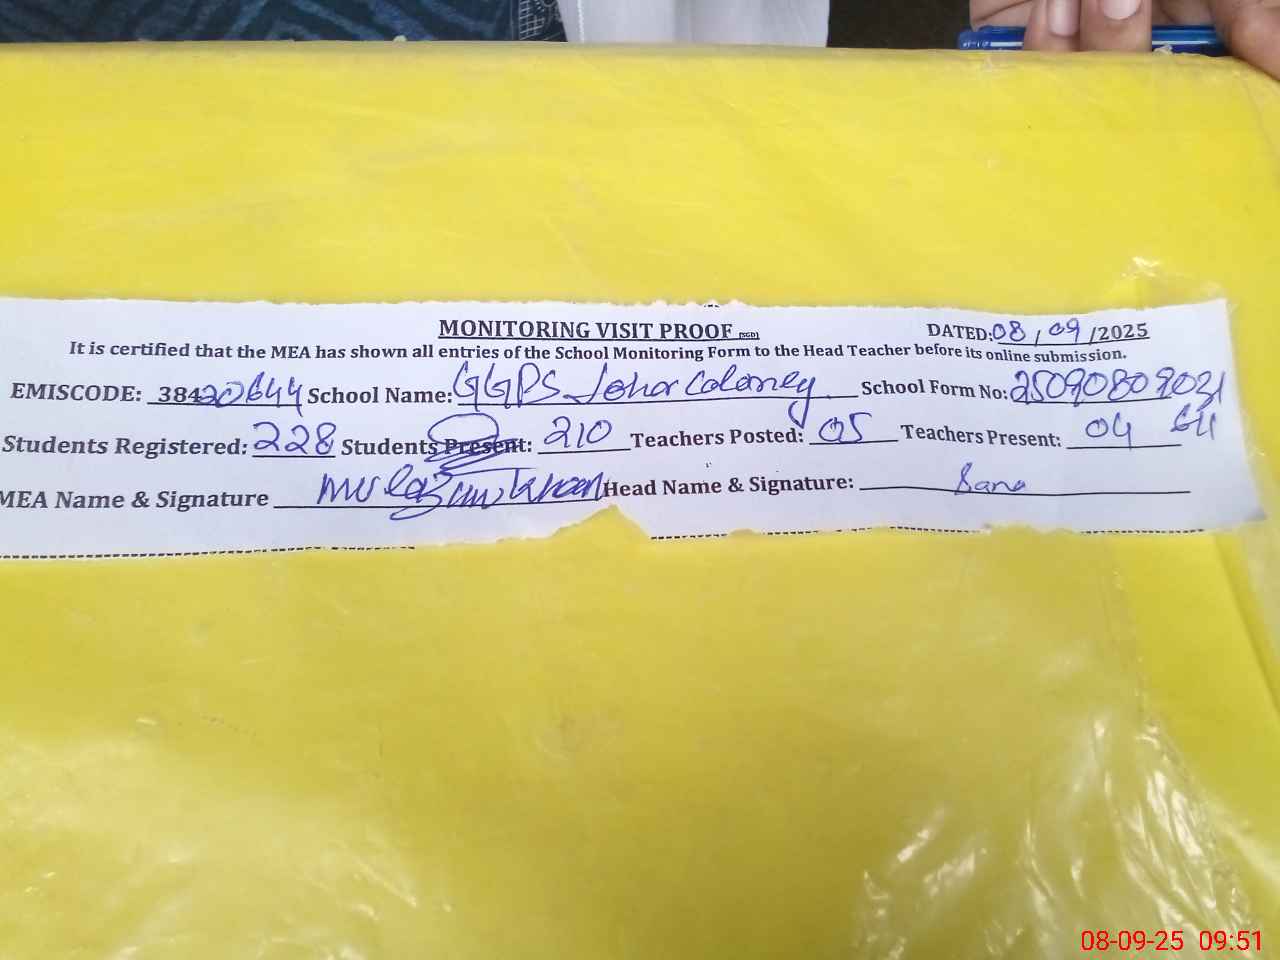 MONITORING VISIT PROOF (SGD) DATED: 08 / 09 /2025
It is certified that the MEA has shown all entries of the School Monitoring Form to the Head Teacher before its online submission.
EMISCODE: 38420644 School Name: GGPS Johar Coloney School Form No: 25090809021
Students Registered: 228 Students Present: 210 Teachers Posted: 05 Teachers Present: 04
MEA Name & Signature Head Name & Signature: Sana
08-09-25 09:51